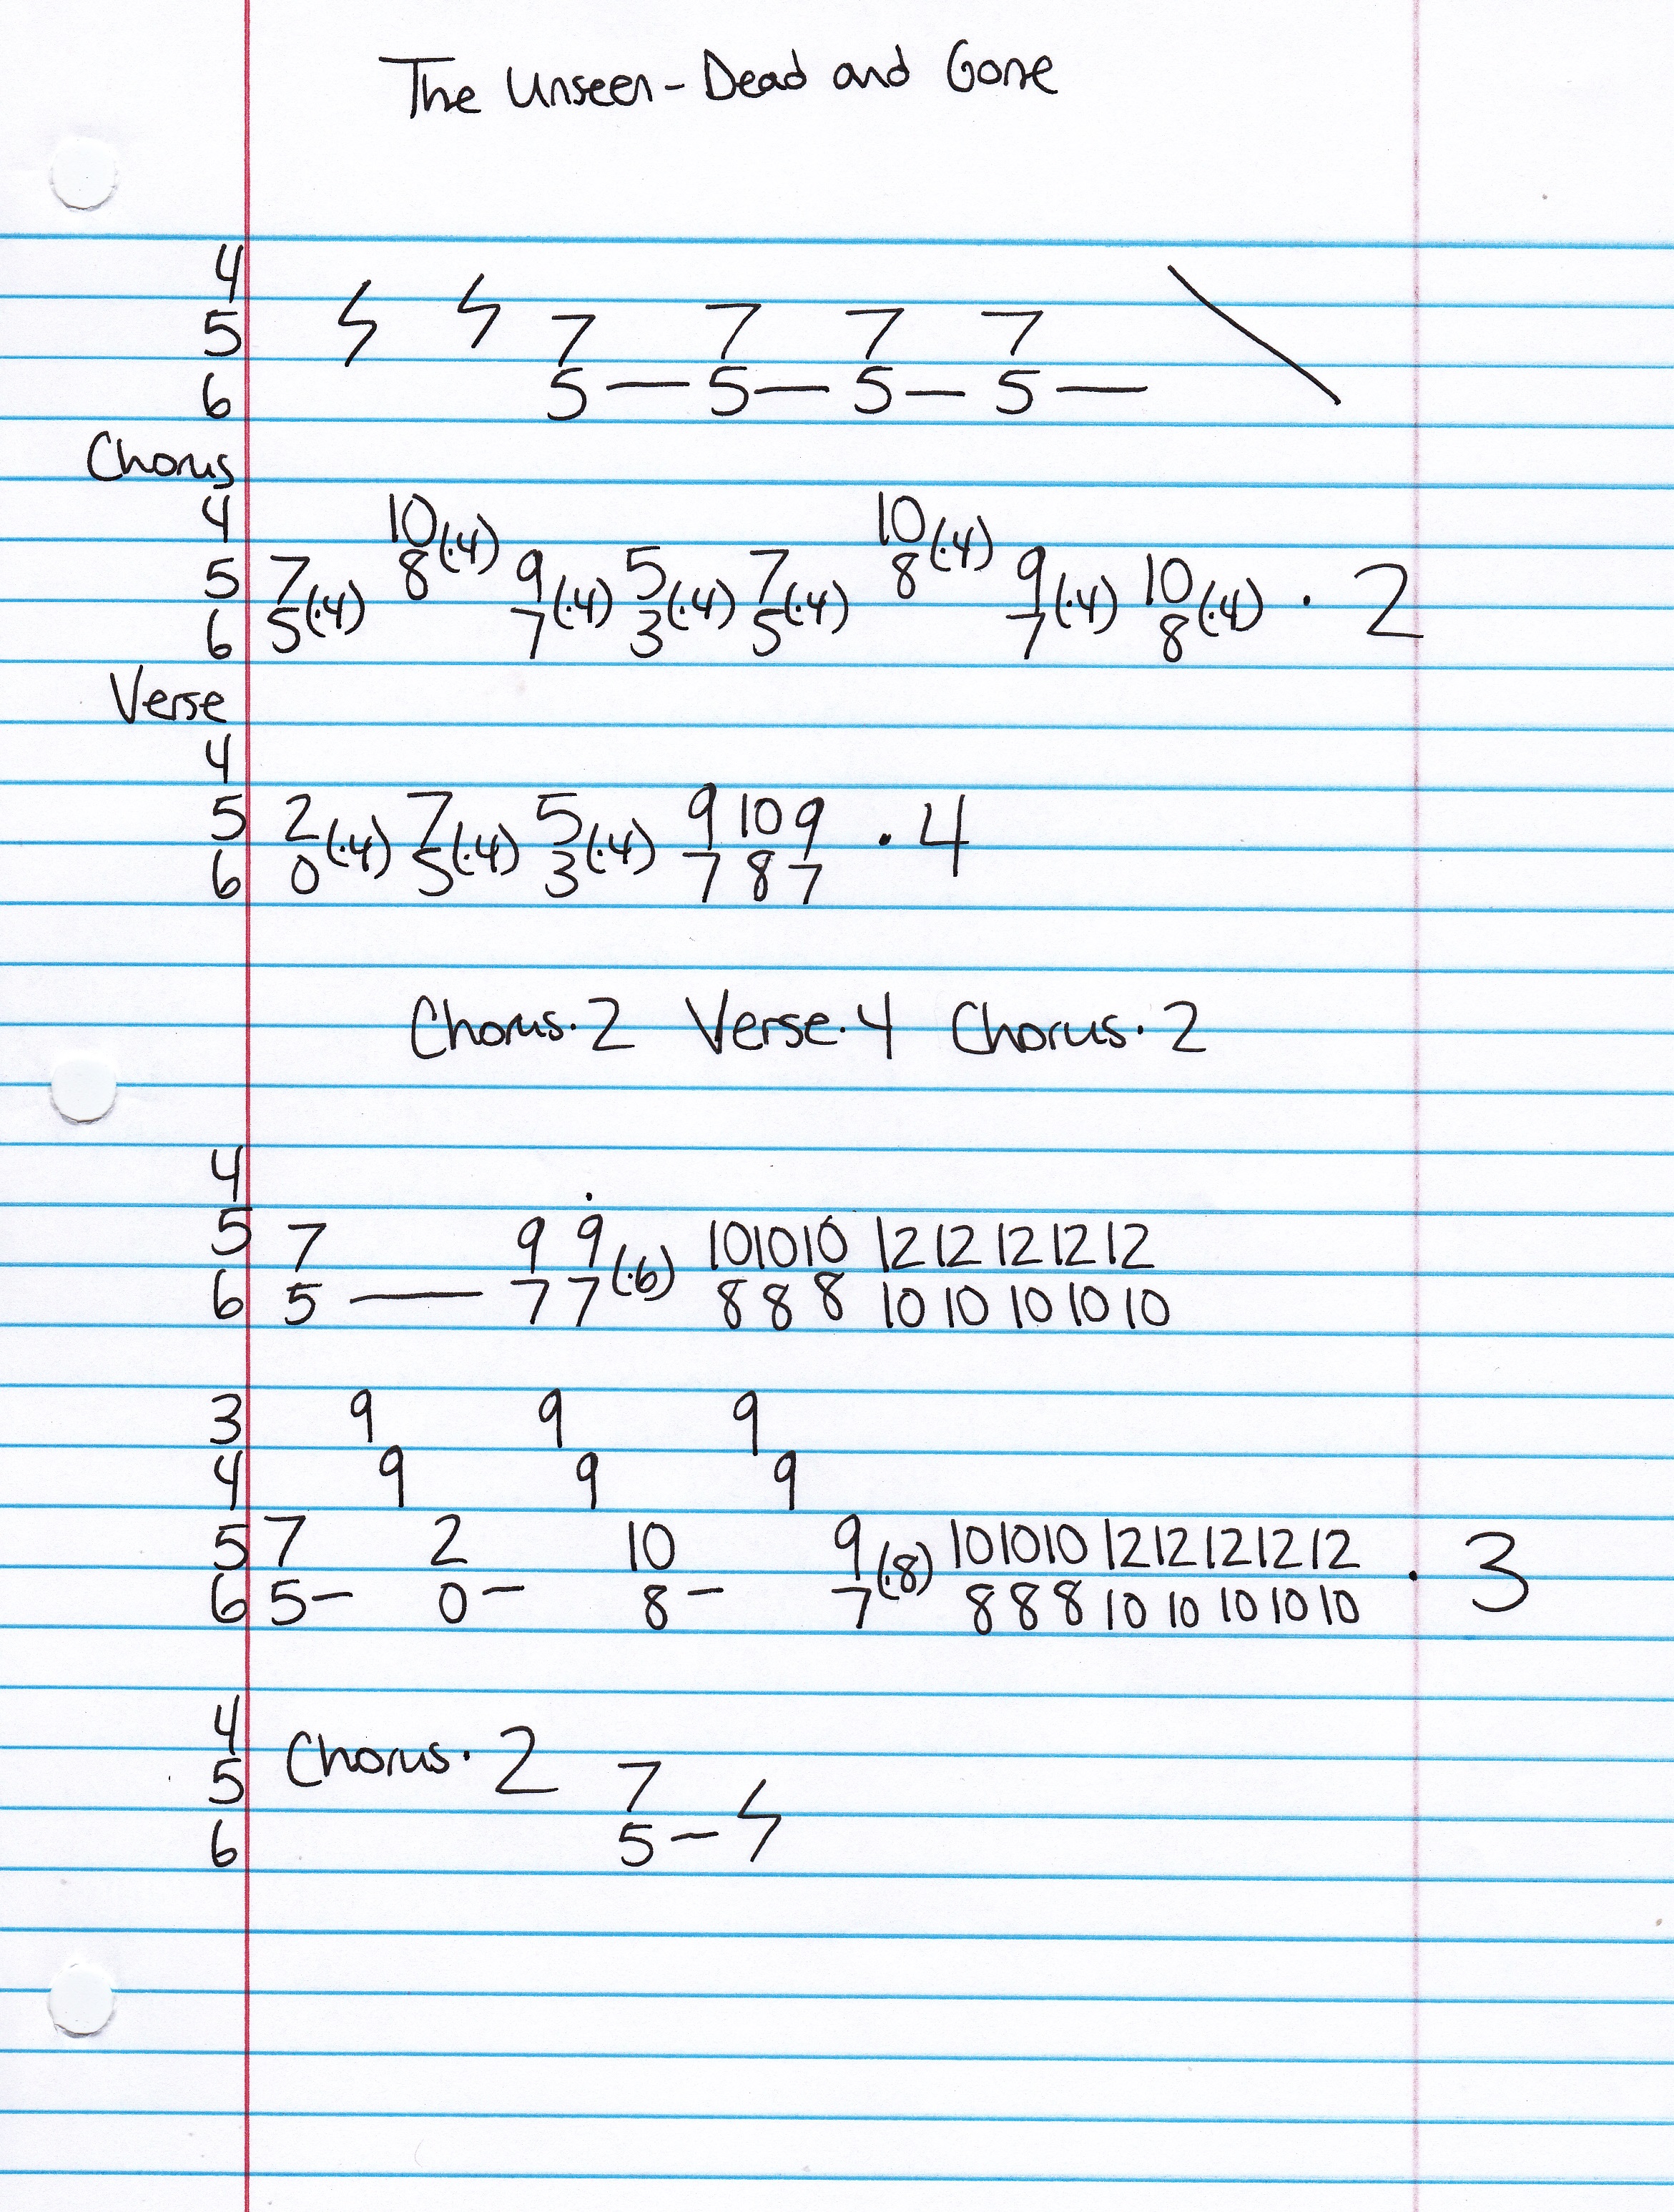 The Unseen - Dead and Gone
4
5 7 7 7 7
6 5 — 5 — 5 — 5 —
Chorus
4 10 10
5 7 8(·4) 9 5 7 8(·4) 9 10
6 5(·4) 7(·4) 3(·4) 5(·4) 7(·4) 8(·4) · 2
Verse
4
5 2 7 5 9 10 9 · 4
6 0(·4) 5(·4) 3(·4) 7 8 7
Chorus·2 Verse·4 Chorus·2
4
5 7 9 9 10 10 10 12 12 12 12 12
6 5 — 7 7(·6) 8 8 8 10 10 10 10 10
3 9 9 9
4 9 9 9
5 7 2 10 9 10 10 10 12 12 12 12 12
6 5 – 0 – 8 – 7(·8) 8 8 8 10 10 10 10 10 · 3
4
5 Chorus·2 7
6 5 –